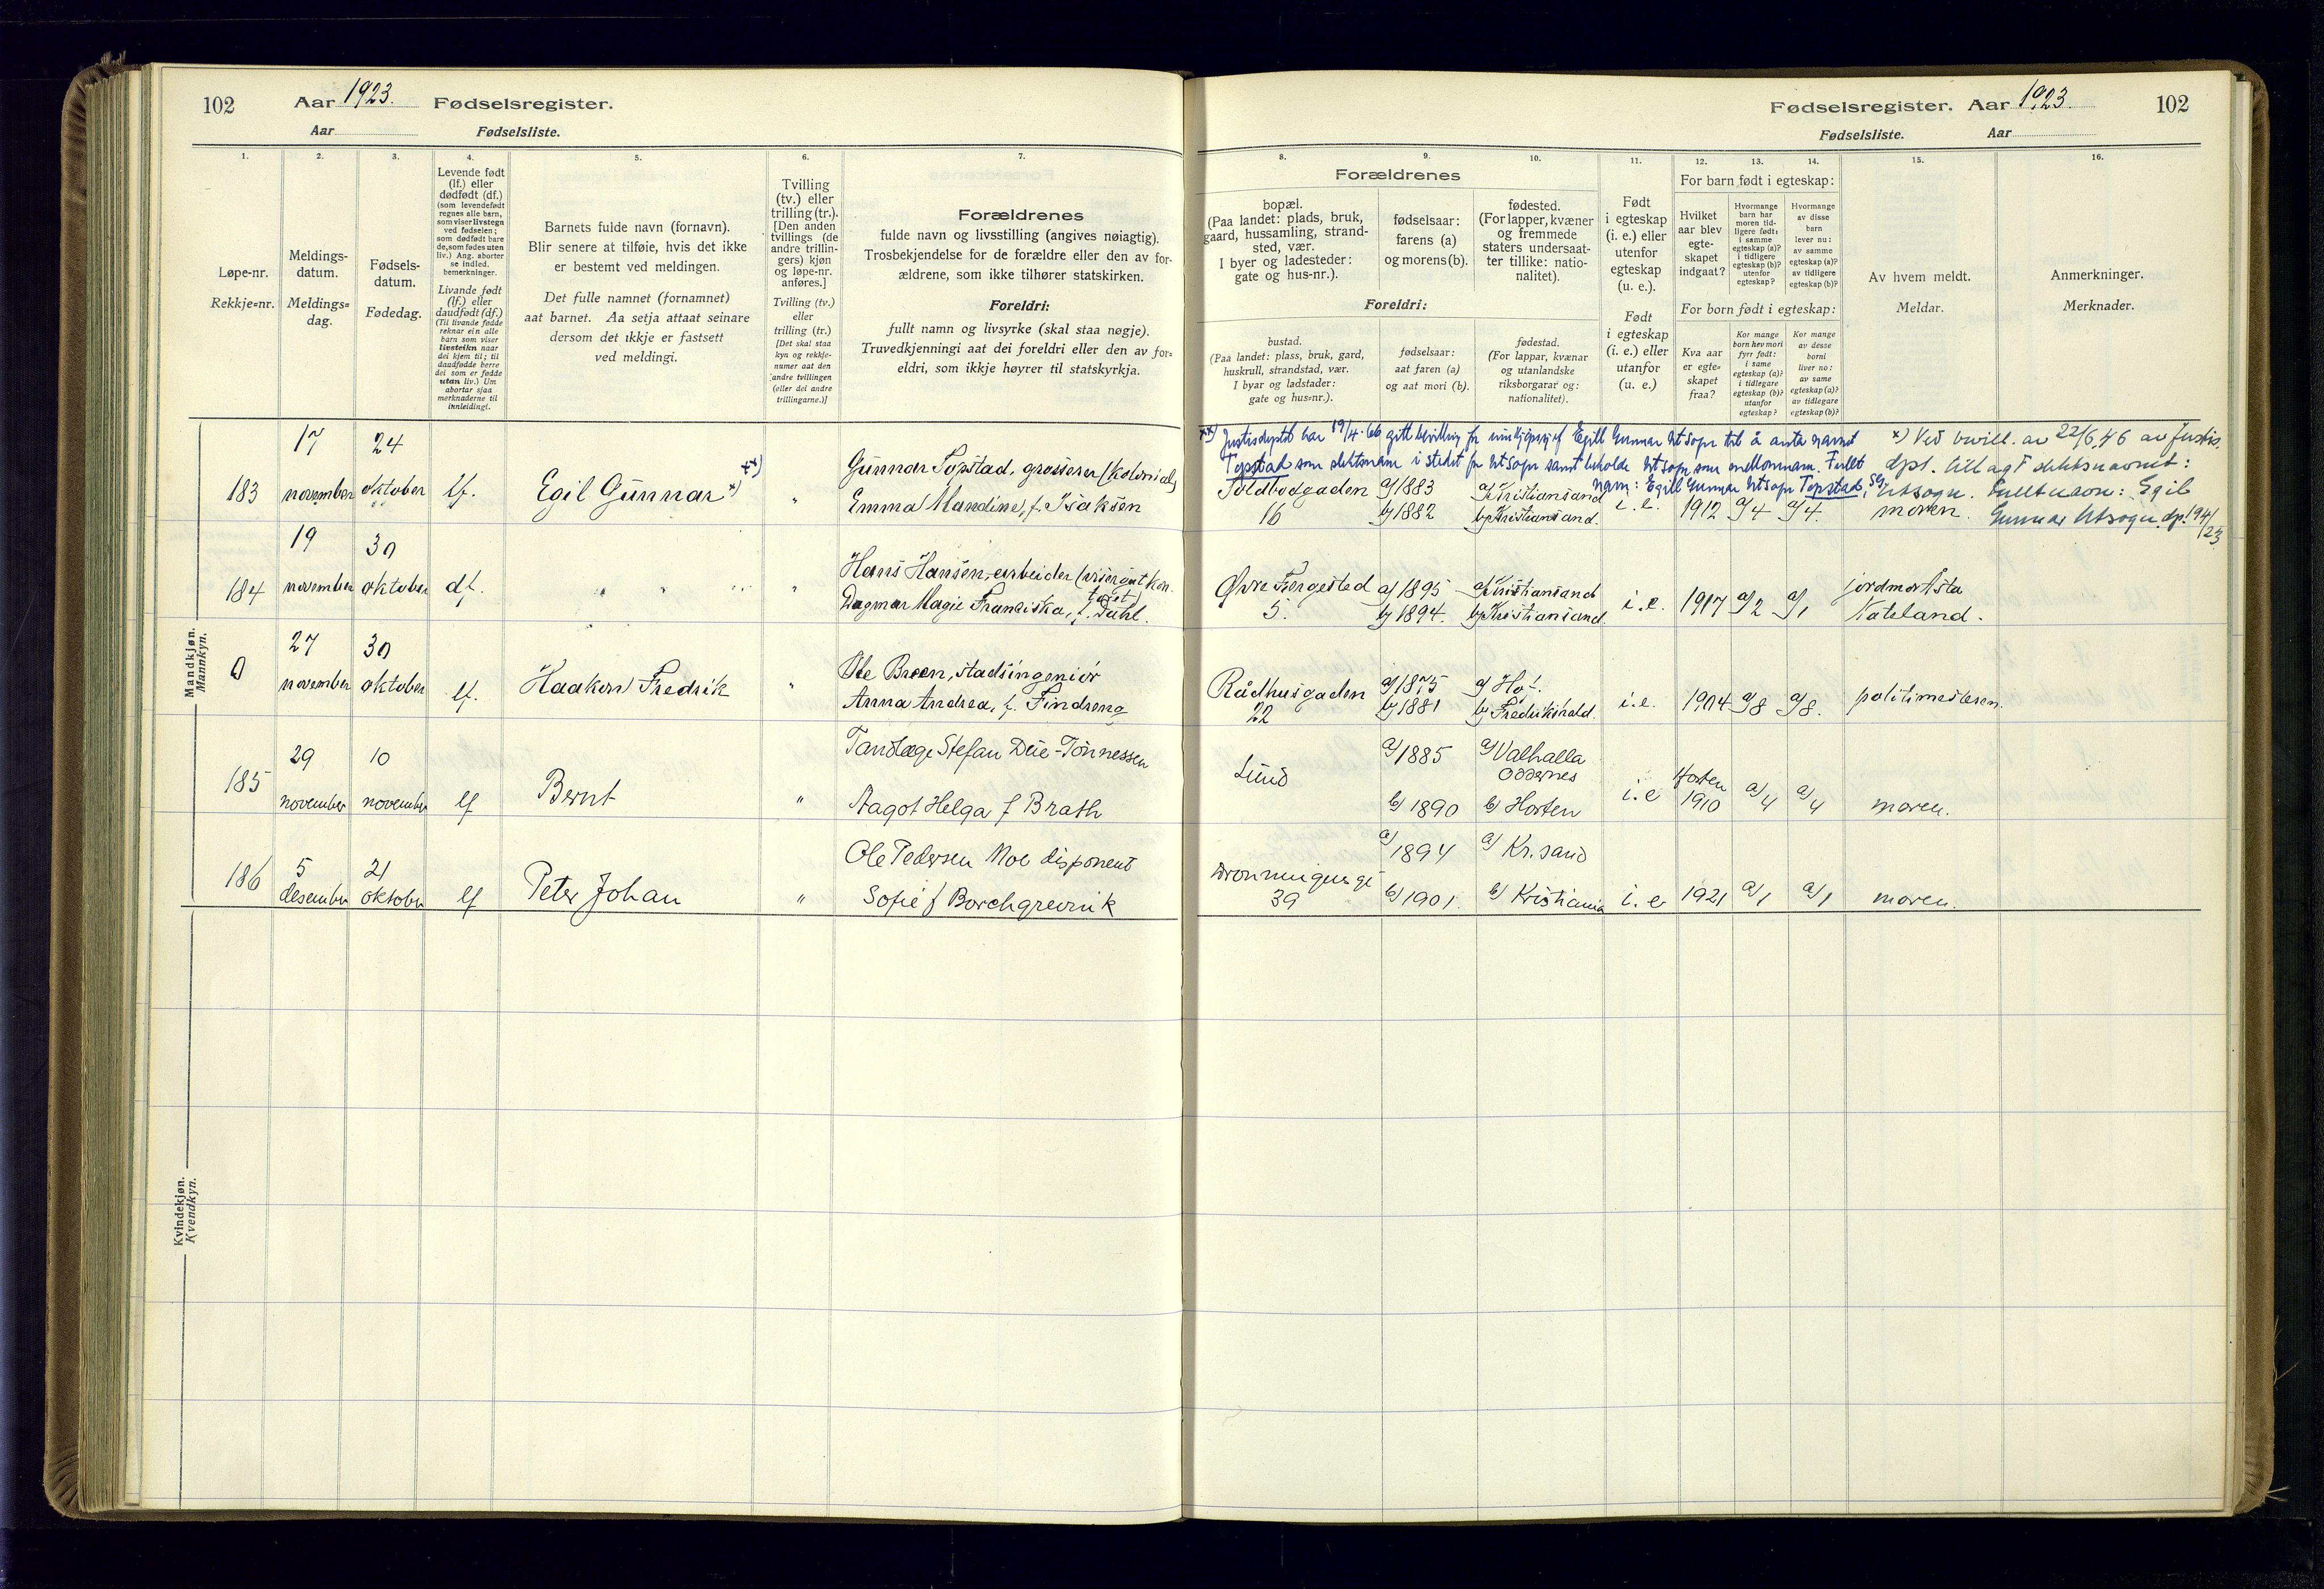 102
Aar 1923. Fødselsregister.
Aar Fødselsliste.
1.
2.
3.
4.
5.
6.
7.
Løpe-nr.
Rekkje=nr.
Meldings-
datum.
Meldings=
dag.
Fødsels-
datum.
Fødedag.
Levende født
(lf.) eller
dødfødt (df.)
(som levendefødt
regnes alle barn,
som viser livstegn
ved fødselen;
som dødfødt bare
de, som fødes uten
liv.) Ang. aborter
se indled.
bemerkninger.
Livande født
(lf.) eller
daudfødt (df.)
(Til livande fødde
reknar ein alle
barn som viser
livsteikn naar
dei kjem til; til
daudfødde berre
dei som er fødde
utan liv.) Um
abortar sjaa
merknaderne til
innleidingi.
Barnets fulde navn (fornavn).
Blir senere at tilføie, hvis det ikke
er bestemt ved meldingen.
Det fulle namnet (fornamnet)
aat barnet. Aa setja attaat seinare
dersom det ikkje er fastsett
ved meldingi.
Tvilling
(tv.) eller
trilling (tr.).
[Den anden
tvillings (de
andre trillin-
gers) kjøn
og løpe-nr.
anføres.]
Tvilling (tv.)
eller
trilling (tr.)
[Det skal staa
kyn og rekkje-
numer aat den
andre tvillingen
(eller dei andre
trillingarne.)]
Forældrenes
fulde navn og livsstilling (angives nøiagtig).
Trosbekjendelse for de forældre eller den av for-
ældrene, som ikke tilhører statskirken.
Foreldri:
fullt namn og livsyrke (skal staa nøgje).
Truvedkjenningi aat dei foreldri eller den av for=
eldri, som ikkje høyrer til statskyrkja.
Mandkjøn.
Mannkyn.
17 24
183 november oktober lf. Egil Gunnar x) xx) " Gunnar Topstad, grosserer (kolonial)
Emma Mandine, f. Isaksen
19 30
184 november oktober df. " " " " Hans Hansen, arbeider
Dagmar Magie Franciska, f. Dahl.
27 30
0 november oktober lf. Haakon Fredrik " Ole Breen, stadsingeniør
Anna Andrea, f. Findreng
29 10
185 november november lf Bernt " Tandlæge Stefan Due-Tönnessen
Aagot Helga f Brath
5 21
186 desember oktober lf Peter Johan " Ole Pedersen Moe disponent
Sofie f Borchgrevink
Kvindekjøn.
Kvendkyn.
Fødselsregister. Aar 1923. 102
Fødselsliste. Aar
8.
9.
10.
11.
12.
13.
14.
15.
16.
Forældrenes
bopæl.
(Paa landet: plads, bruk,
gaard, hussamling, strand-
sted, vær.
I byer og ladesteder:
gate og hus-nr.).
fødselsaar:
farens (a)
og morens (b).
fødested.
(For lapper, kvæner
og fremmede
staters undersaat-
ter tillike: natio-
nalitet).
Foreldri:
bustad.
(Paa landet: plass, bruk, gard,
huskrull, strandstad, vær.
I byar og ladstader:
gate og hus=nr.).
fødselsaar:
aat faren (a)
og aat mori (b).
fødestad.
(For lappar, kvænar
og utanlandske
riksborgarar og:
nationalitet).
Født
i egteskap
(i. e.) eller
utenfor
egteskap
(u. e.).
Født
i egteskap
(i. e.) eller
utanfor
(u. e.)
For barn født i egteskap:
Hvilket
aar blev
egte-
skapet
indgaat?
Hvormange
barn har
moren tid-
ligere født:
i samme
egteskap (a)?
i tidligere
egteskap (b)?
utenfor
egteskap?
Hvormange
av disse
barn
lever nu:
av samme
egteskap (a)?
av tidligere
egteskap (b)?
For born født i egteskap:
Kva aar
er egte=
skapet
fraa?
Kor mange
born hev mori
fyrr født:
i same
egteskap (a)?
i tidlegare
egteskap (b)?
utanfor
egteskap?
Kor mange
av desse
borni
liver no:
av same
egteskap (a)?
av tidlegare
egteskap (b)?
Av hvem meldt.
Meldar.
Anmerkninger.
Merknader.
xx) Justisdeptet har 19/4-66 gitt bevilling for innkjøpssjef Egill Gunnar Utsogn til å anta navnet
Topstad som slektsnavn i stedet for Utsogn samt beholde Utsogn som mellomnavn. Fullt
navn: Egill Gunnar Utsogn Topstad,
x) Ved bevill. av 22/6,46 av Justis.
dpt. tillagt slektsnavnet:
Utsogn. Fullt navn: Egil
Gunnar Utsogn. dp. 19 4/23
Toldbodgaden a/1883 a/Kristiansand
16 b/1882 b/Kristiansand. i.e. 1912 a/4 a/4. moren.
Øvre a/1895 a/Kristiansand
5. b/1894. b/Kristiansand. i.e. 1917 a/2 a/1 jordmor Asta
Nateland.
Rådhusgaden a/1875 a/Hof.
22 b/1881 b/Fredrikshald. i.e. 1904 a/8 a/8. politimesteren.
Lund a/1885 a/Valhalla
Oddernes
b/1890 b/Horten i.e Horten
1910 a/4 a/4 moren.
Dronningensgt a/1894 a/Kr.sand
39 b/1901. b/Kristiania i.e 1921 a/1 a/1 moren.